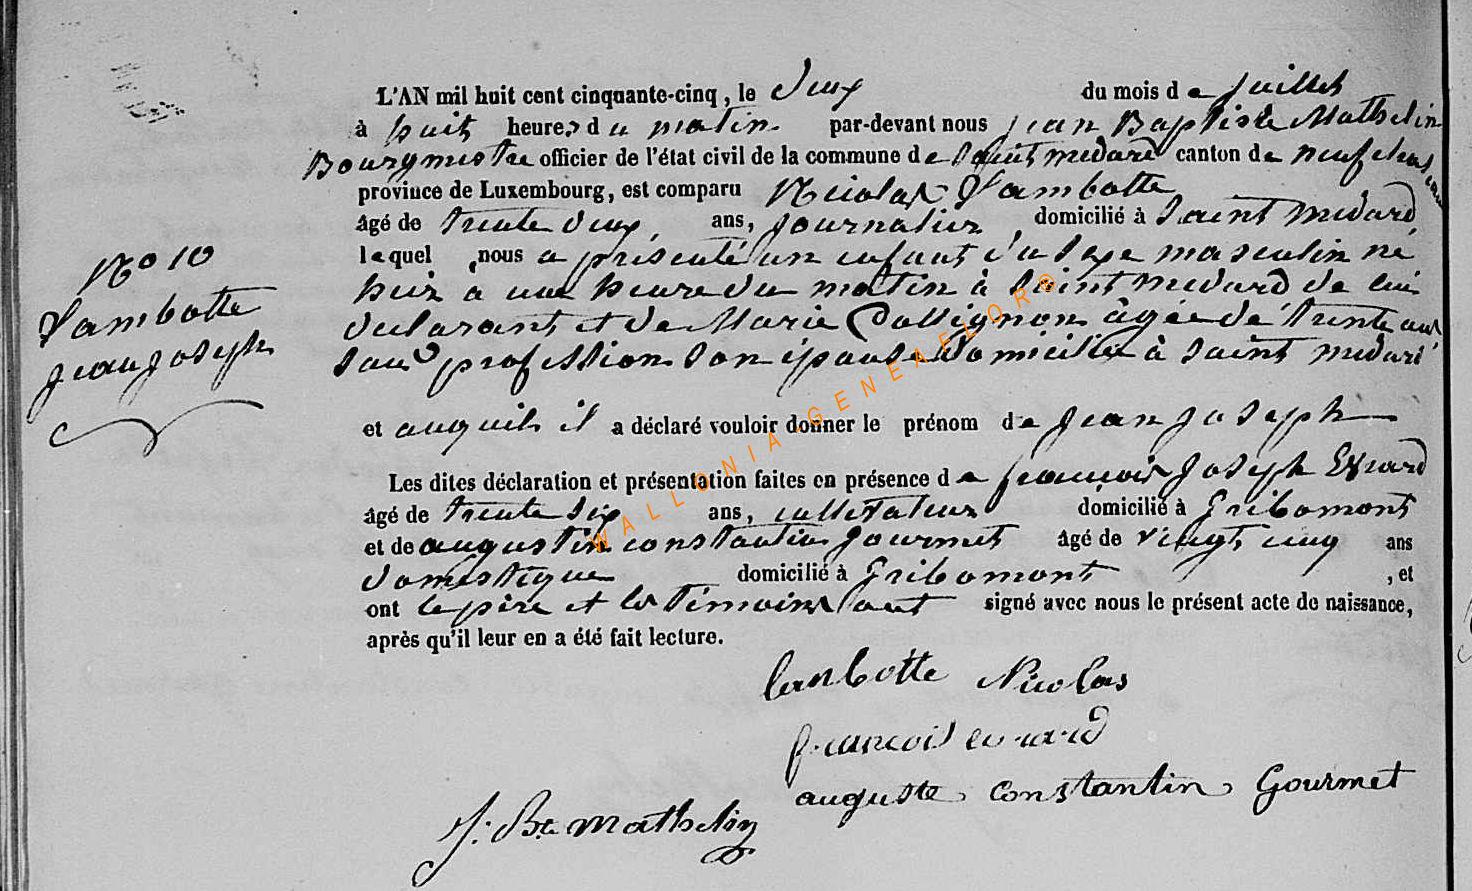 L'AN mil huit cent cinquante-cinq, le deux du mois de Juillet
à huit heures du matin par-devant nous Jean Baptiste Mathelin
Bourgmestre officier de l'état civil de la commune de Saint medard canton de neufchateau
province de Luxembourg, est comparu Nicolas Lambotte
âgé de trente deux, ans, Journalier, domicilié à Saint medard,
lequel nous a présenté un enfant du Sexe masculin né
hier a une heure du matin à Saint medard de lui
déclarant et de Marie Collignon âgée de trente ans
Sans profession Son épouse domiciliée à Saint medard
et auquel il a déclaré vouloir donner le prénom de Jean Joseph
Les dites déclaration et présentation faites en présence de françois Joseph Evrard
âgé de trente Six ans, cultivateur domicilié à Gribomont
et de augustin constantin Gourmet âgé de vingt cinq ans
domestique domicilié à Gribomont, et
ont le père et les témoins ont signé avec nous le présent acte de naissance,
après qu'il leur en a été fait lecture.
No 10
Lambotte
Jean Joseph
Lambotte Nicolas
françois evrard
auguste Constantin Gourmet
J. Bte Mathelin
WALLONIA-GENEAFLOR®